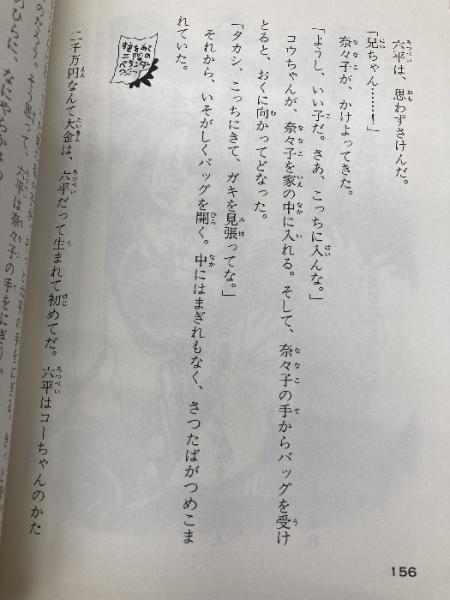 六平は、思わずさけんだ。
「兄ちゃん……！」
奈々子が、かけよってきた。
「ようし、いい子だ。さあ、こっちに入んな。」
コウちゃんが、奈々子を家の中に入れる。そして、奈々子の手からバッグを受け
とると、おくに向かってどなった。
「タカシ、こっちにきて、ガキを見張ってな。」
それから、いそがしくバッグを開く。中にはまぎれもなく、さつたばがつめこま
れていた。
二千万円なんて大金は、六平だって生まれて初めてだ。六平はコーちゃんのかた
156